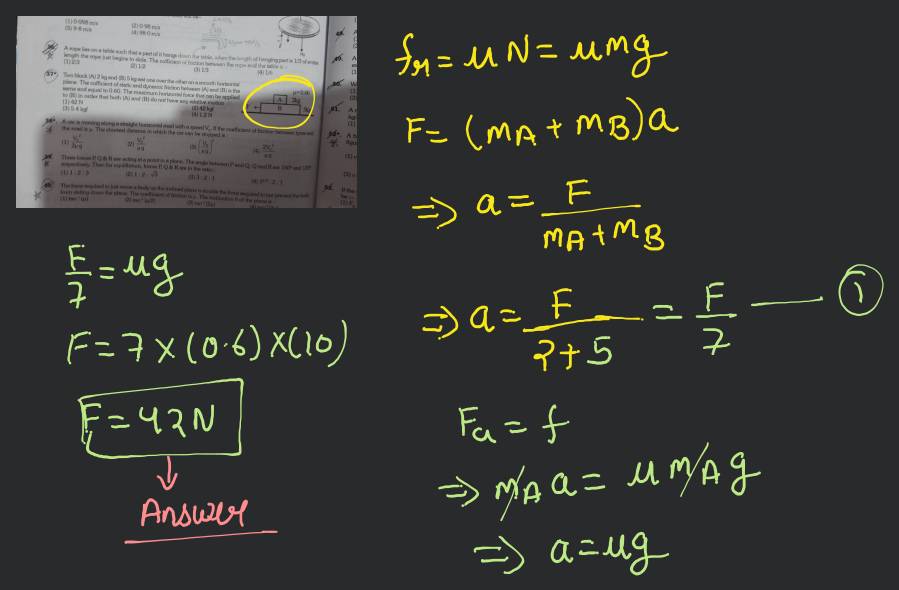 (1) 0.098 m/s (2) 0.98 m/s
(3) 9.8 m/s (4) 98.0 m/s
A rope lies on a table such that a part of it hangs down the table, when the length of hanging part is 1/3 of entire
length the rope just begins to slide. The coefficient of friction between the rope and the table is -
(1) 2/3 (2) 1/2 (3) 1/3 (4) 1/6
57*. Two block (A) 2 kg and (B) 5 kg rest one over the other on a smooth horizontal
plane. The coefficient of static and dynamic friction between (A) and (B) is the
same and equal to 0.60. The maximum horizontal force that can be applied
to (B) in order that both (A) and (B) do not have any relative motion
(1) 42 N (2) 42 kgf
(3) 5.4 kgf (4) 1.2 N
A
B
A car is moving along a straight horizontal road with a speed V₀. If the coefficient of friction between
the road is μ. The shortest distance in which the car can be stopped is
Three forces P, Q & R are acting at a point in a plane. The angle between P and Q, Q and R are 150° and 120°
respectively. Then for equilibrium, forces P, Q & R are in the ratio
(1) 1 : 2 : 3 (2) 1 : 2 : √3 (3) 3 : 2 : 1
The force required to just move a body up the inclined plane is double the force required to just prevent the body
from sliding down the plane. The coefficient of friction is μ. The inclination of the plane is
fₘ = μN = μmg
F = (mA + mB)a
⇒ a = F / (mA + mB)
⇒ a = F / (2+5) = F/7 —— ①
Fa = f
⇒ mA a = μ mA g
⇒ a = μg
F/7 = μg
F = 7 × (0.6) × (10)
F = 42N
Answer